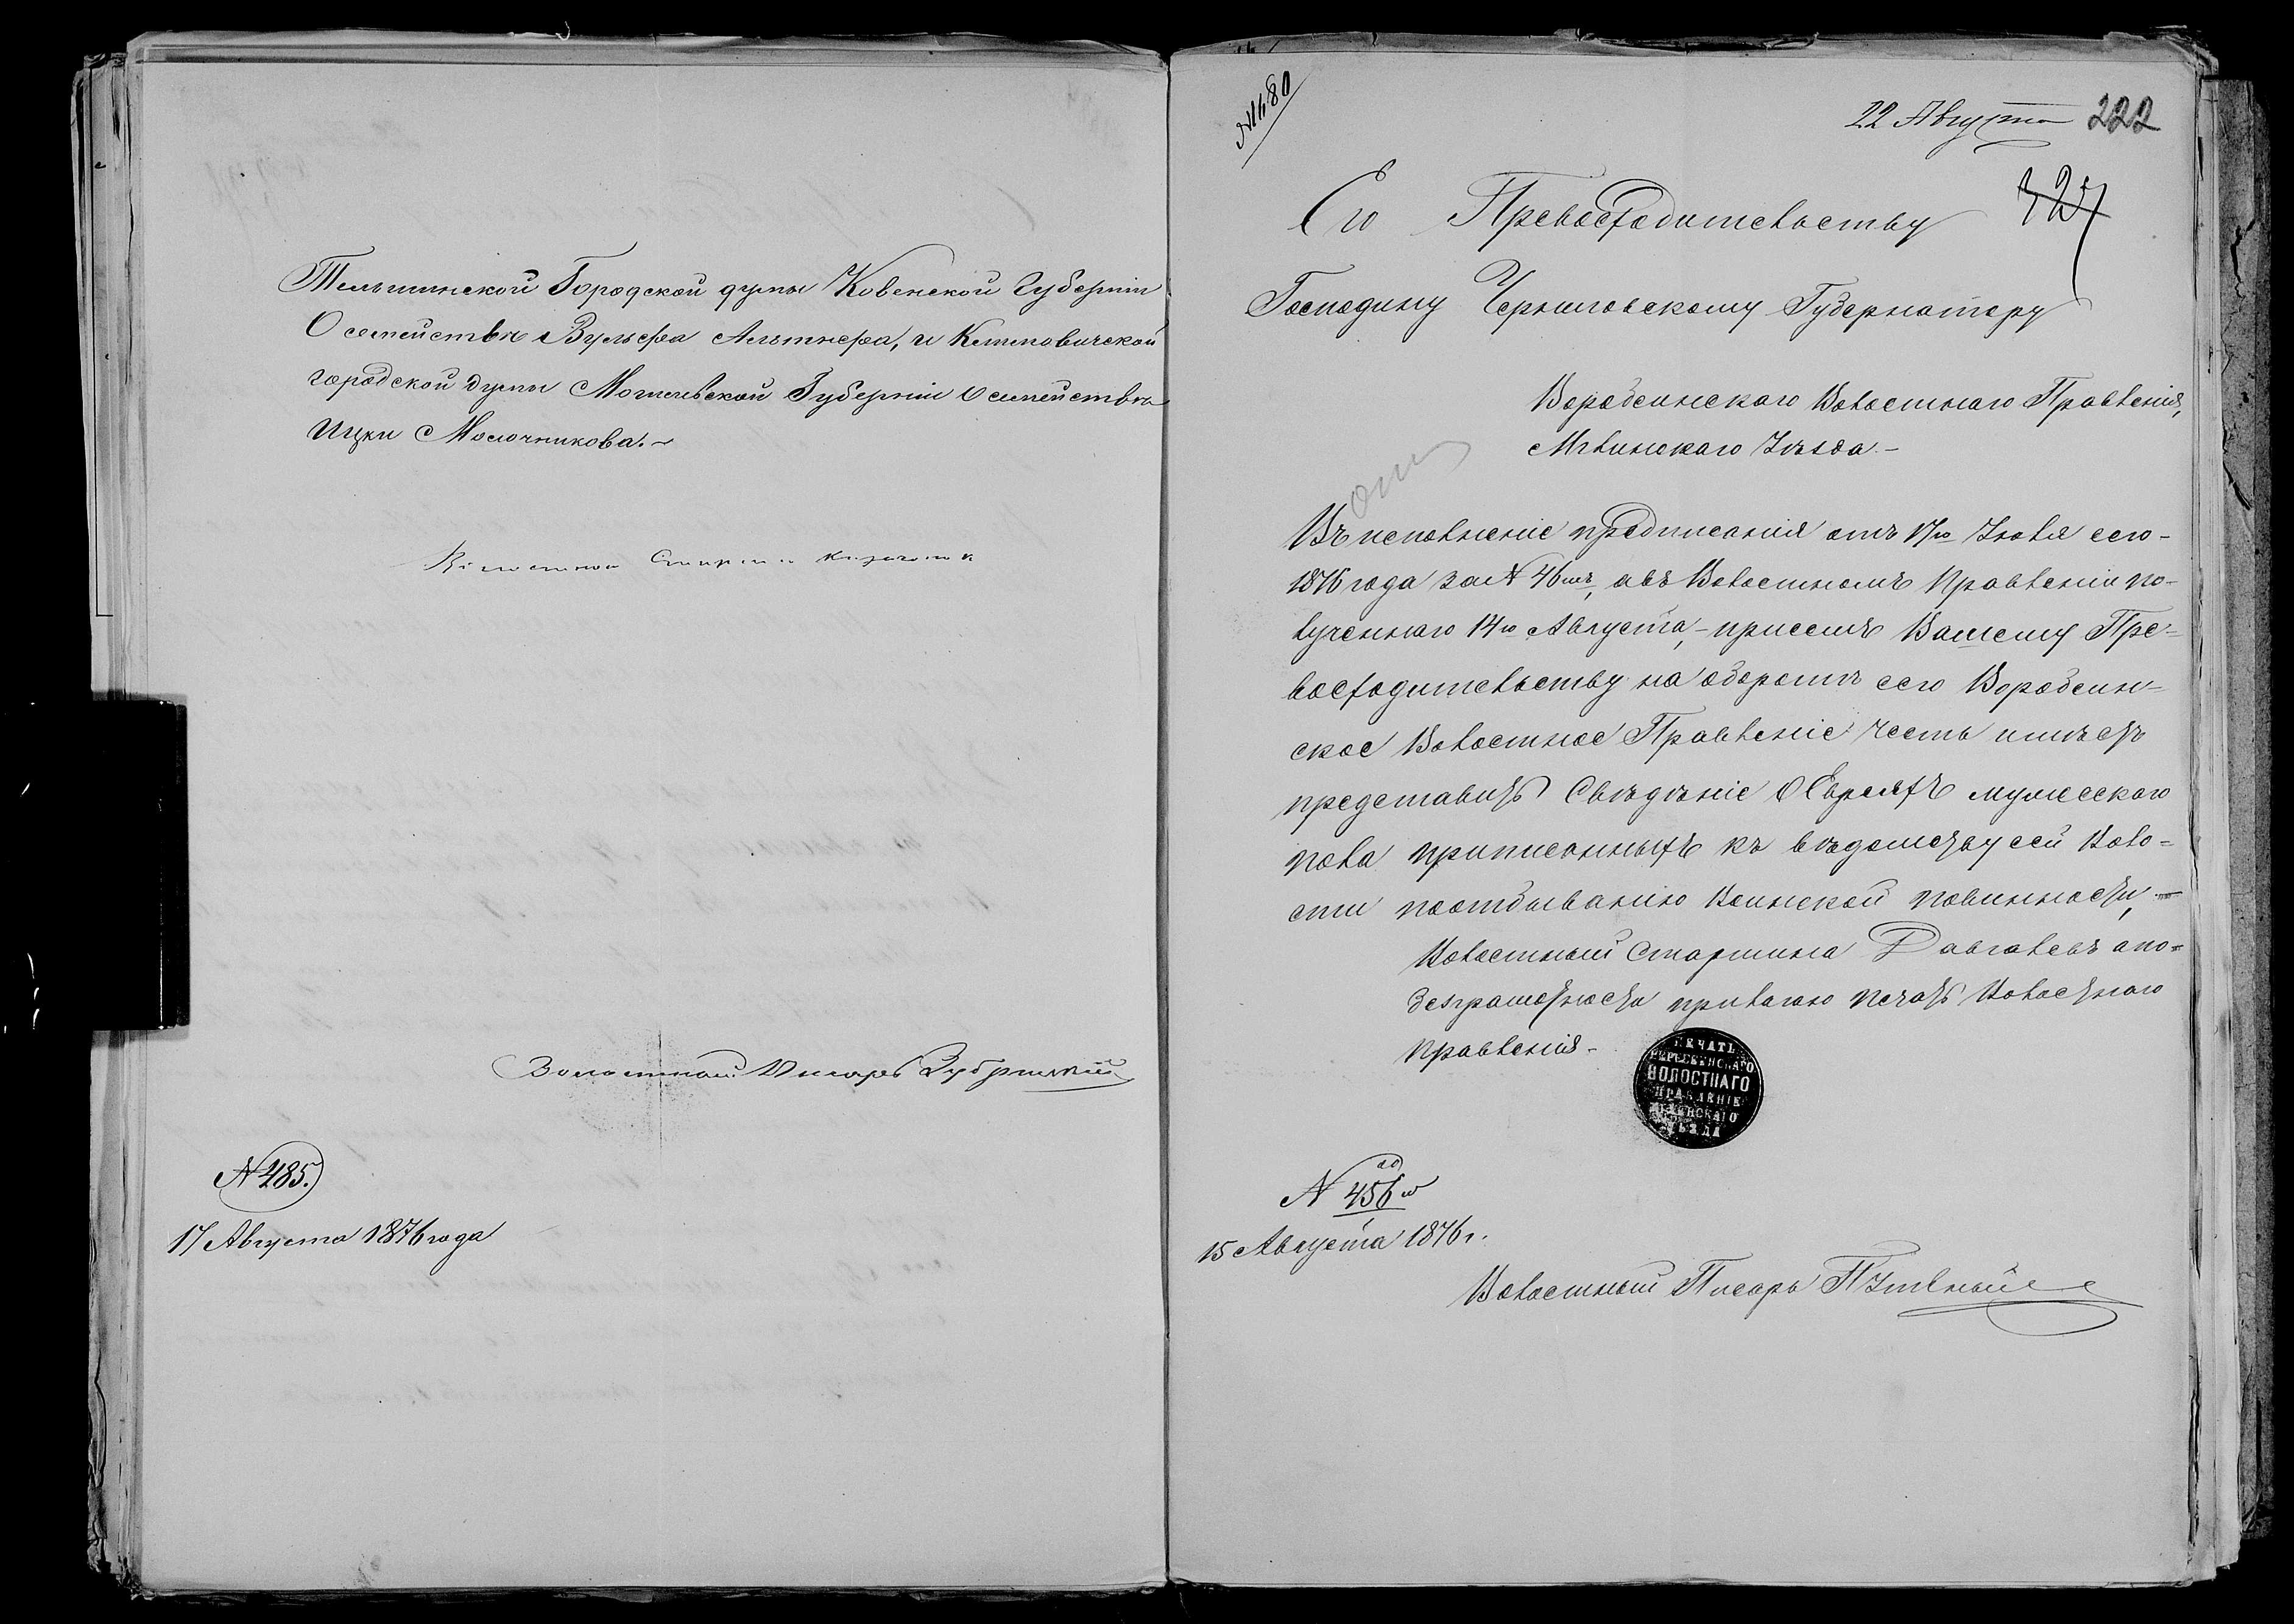 Тельшинской Городской думы Ковенской Губерніи
О семействѣ Вульфа Альтнера, и Климовичской
городской думы Могилевской Губерніи о семействѣ
Ицки Молочникова.-
Волостной
Волостной Писарь Зубрицкій
№ 485.
17 Августа 1876 года
№ 1480
22 Августа 222
327
Его Превосходительству
Господину Черниговскому Губернатору
Волостнаго Правленія,
Мглинскаго Уѣзда.-
Въ исполненіе предписанія отъ 17го Іюля сего-
1876 года за № 46мъ, авъ Волостномъ Правленіи по-
лученнаго 14го Августа,- присемъ Вашему Пре-
восходительству на оборотѣ сего
ское Волостное Правленіе честь имѣетъ
представить Свѣдѣніе О Евреяхъ мужескаго
пола приписанныхъ къ вѣдомству сей Воло-
сти поотбыванію Воинской повинности,-
Волостный Старшина апо-
безграмотности прилагаю печать Волостнаго
Правленія-
ПЕЧАТЬ
ВОЛОСТНАГО
ПРАВЛЕНІЕ
МГЛИНСКАГО
УѢЗДА
№ 456
15 Августа 1876 г.
Волостный Писарь